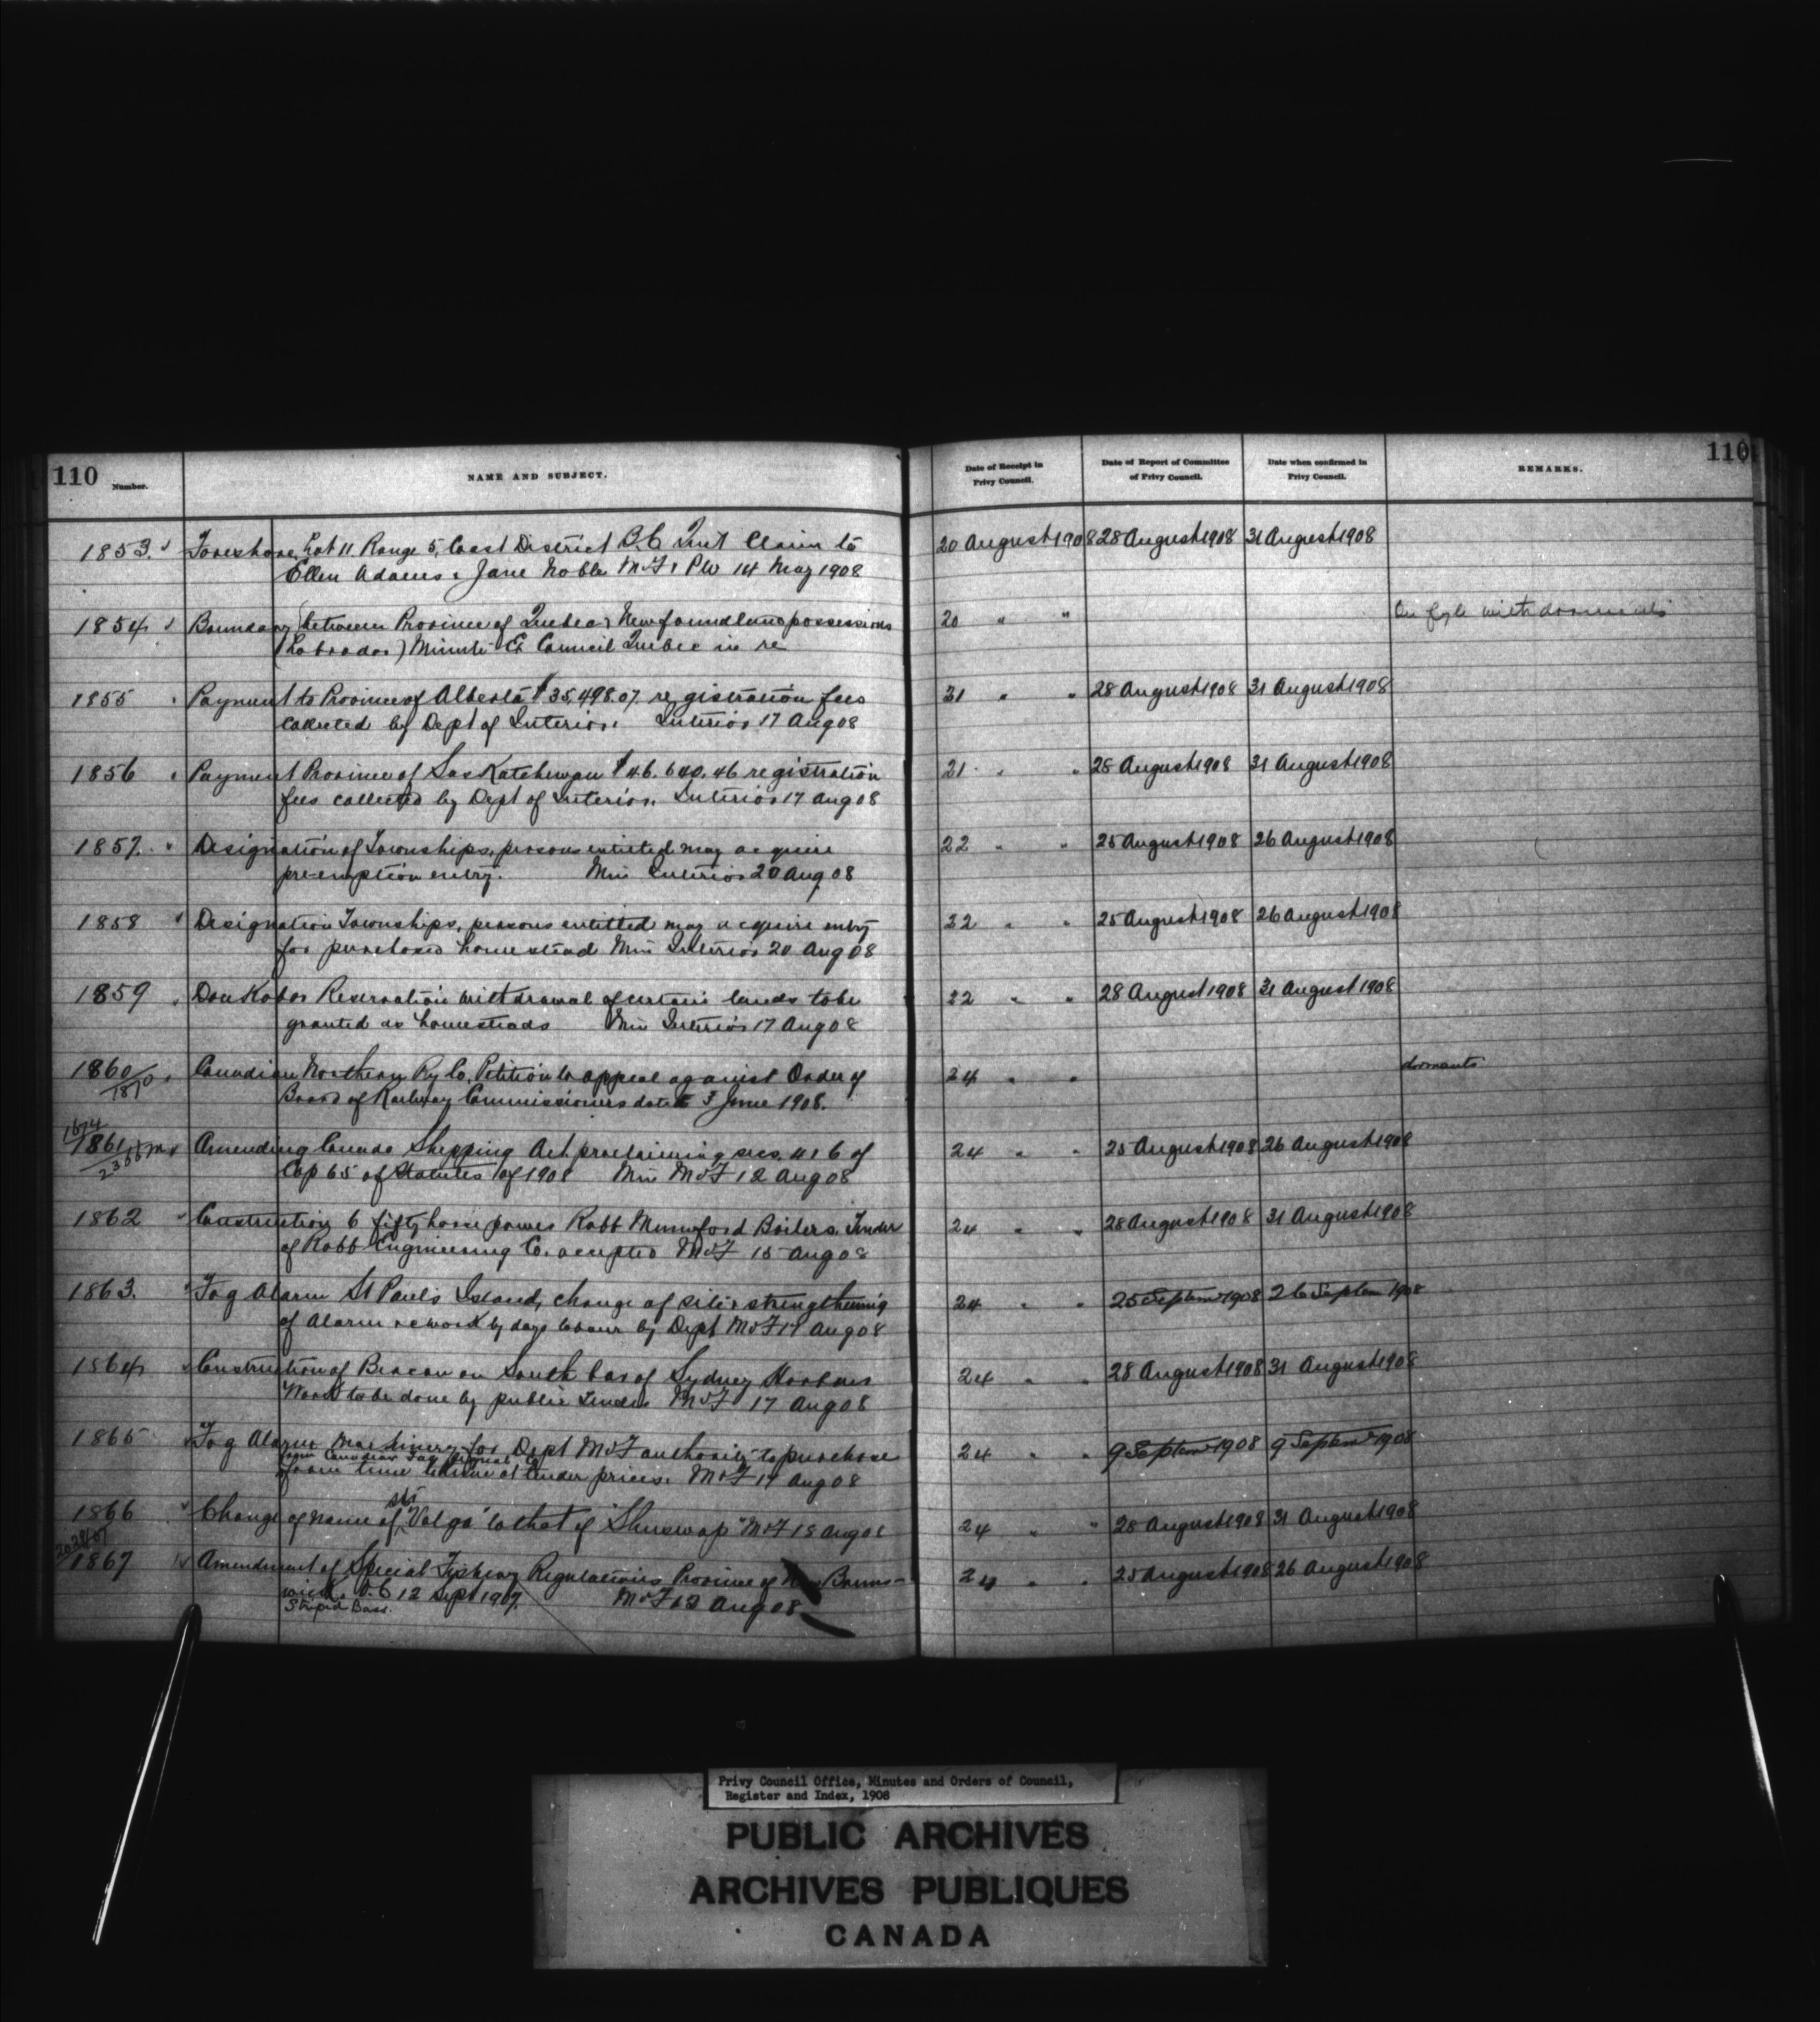 110
Number.
NAME AND SUBJECT.
Date of Receipt in Privy Council.
Date of Report of Committee of Privy Council.
Date when confirmed in Privy Council.
REMARKS.
110
1853. Foreshore, Lot 11 Range 5, Coast District B.C Quit Claim to 20 August 1908 28 August 1908 31 August 1908
Ellen Adams & Jane Noble M&F & PW 14 May 1908
1854 Boundary (between Province of Quebec & Newfoundland possessions 20 " " On fyle with dormants
(Labrador) Minute Ex Council Quebec in re
1855 Payment to Province of Alberta $35,498.07 registration fees 21 " " 28 August 1908 31 August 1908
collected by Dept of Interior. Interior 17 Aug 08
1856 Payment Province of Saskatchewan $46.640.46 registration 21 " " 28 August 1908 31 August 1908
fees collected by Dept of Interior. Interior 17 Aug 08
1857. Designation of Townships, persons entitled may acquire 22 " " 25 August 1908 26 August 1908
pre-emption entry. Min Interior 20 Aug 08
1858 Designation Townships, persons entitled may acquire entry 22 " " 25 August 1908 26 August 1908
for purchased homestead Min Interior 20 Aug 08
1859 Doukobor Reservation withdrawal of certain lands to be 22 " " 28 August 1908 31 August 1908
granted as homesteads Min Interior 17 Aug 08
1860 Canadian Northern Ry Co. Petition to appeal against Order of 24 " " dormants
1870
Board of Railway Commissioners dated 3 June 1908.
1674
1861 Amending Canada Shipping Act proclaiming secs. 4 & 6 of 24 " " 25 August 1908 26 August 1908
Cap 65 of Statutes of 1908 Min M&F 12 Aug 08
1862 Construction 6 fifty horse power Robb Mumford Boilers. Tender 24 " " 28 August 1908 31 August 1908
of Robb Engineering Co. accepted M&F 15 Aug 08
1863. Fog Alarm St Paul's Island, change of site & strengthening 24 " " 25 Septem 1908 26 Septem 1908
of Alarm & work by days labour by Dept M&F 17 Aug 08
1864 Construction of Beacon on South bar of Sydney Harbour 24 " " 28 August 1908 31 August 1908
Work to be done by public Tender M&F 17 Aug 08
1865 Fog Alarm Machinery for Dept M&F authority to purchase 24 " " 9 Septem 1908 9 Septem 1908
from Canadian Fog Signal Co
from time to time at tender prices. M&F 17 Aug 08
1866 Change of name of str "Volga" to that of "Shuswap" M&F 18 Aug 08 24 " " 28 August 1908 31 August 1908
1867 Amendment of Special Fishery Regulations Province of New Bruns- 24 " " 25 August 1908 26 August 1908
wick. O.C 12 Sept 1907. M&F 13 Aug 08
Striped Bass.
Privy Council Office, Minutes and Orders of Council,
Register and Index, 1908
PUBLIC ARCHIVES
ARCHIVES PUBLIQUES
CANADA